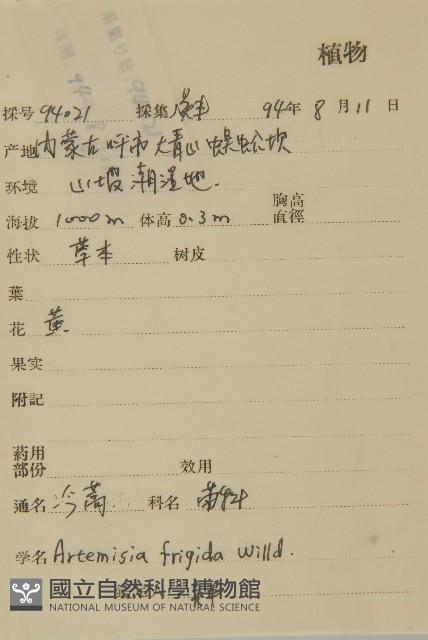 植物
採号 94021 採集 94年 8月 11日
产地 内蒙古呼市大青山蜈蚣坝
环境 山坡潮湿地.
海拔 1000m 体高 0.3m 胸高直徑
性状 草本 树皮
葉
花 黄
果实
附記
葯用部份 効用
通名 冷蒿 科名 菊科
学名 Artemisia frigida Willd.
國立自然科學博物館
NATIONAL MUSEUM OF NATURAL SCIENCE